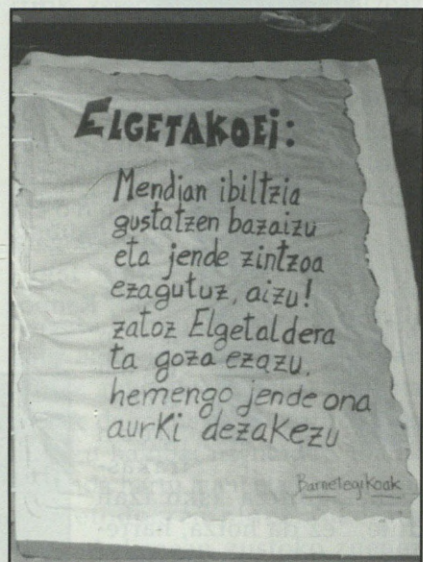 ELGETAKOEI:
Mendian ibiltzia
gustatzen bazaizu
eta jende zintzoa
ezagutuz, aizu!
zatoz Elgetaldera
ta goza ezazu.
hemengo jende ona
aurki dezakezu
Barnetegikoak